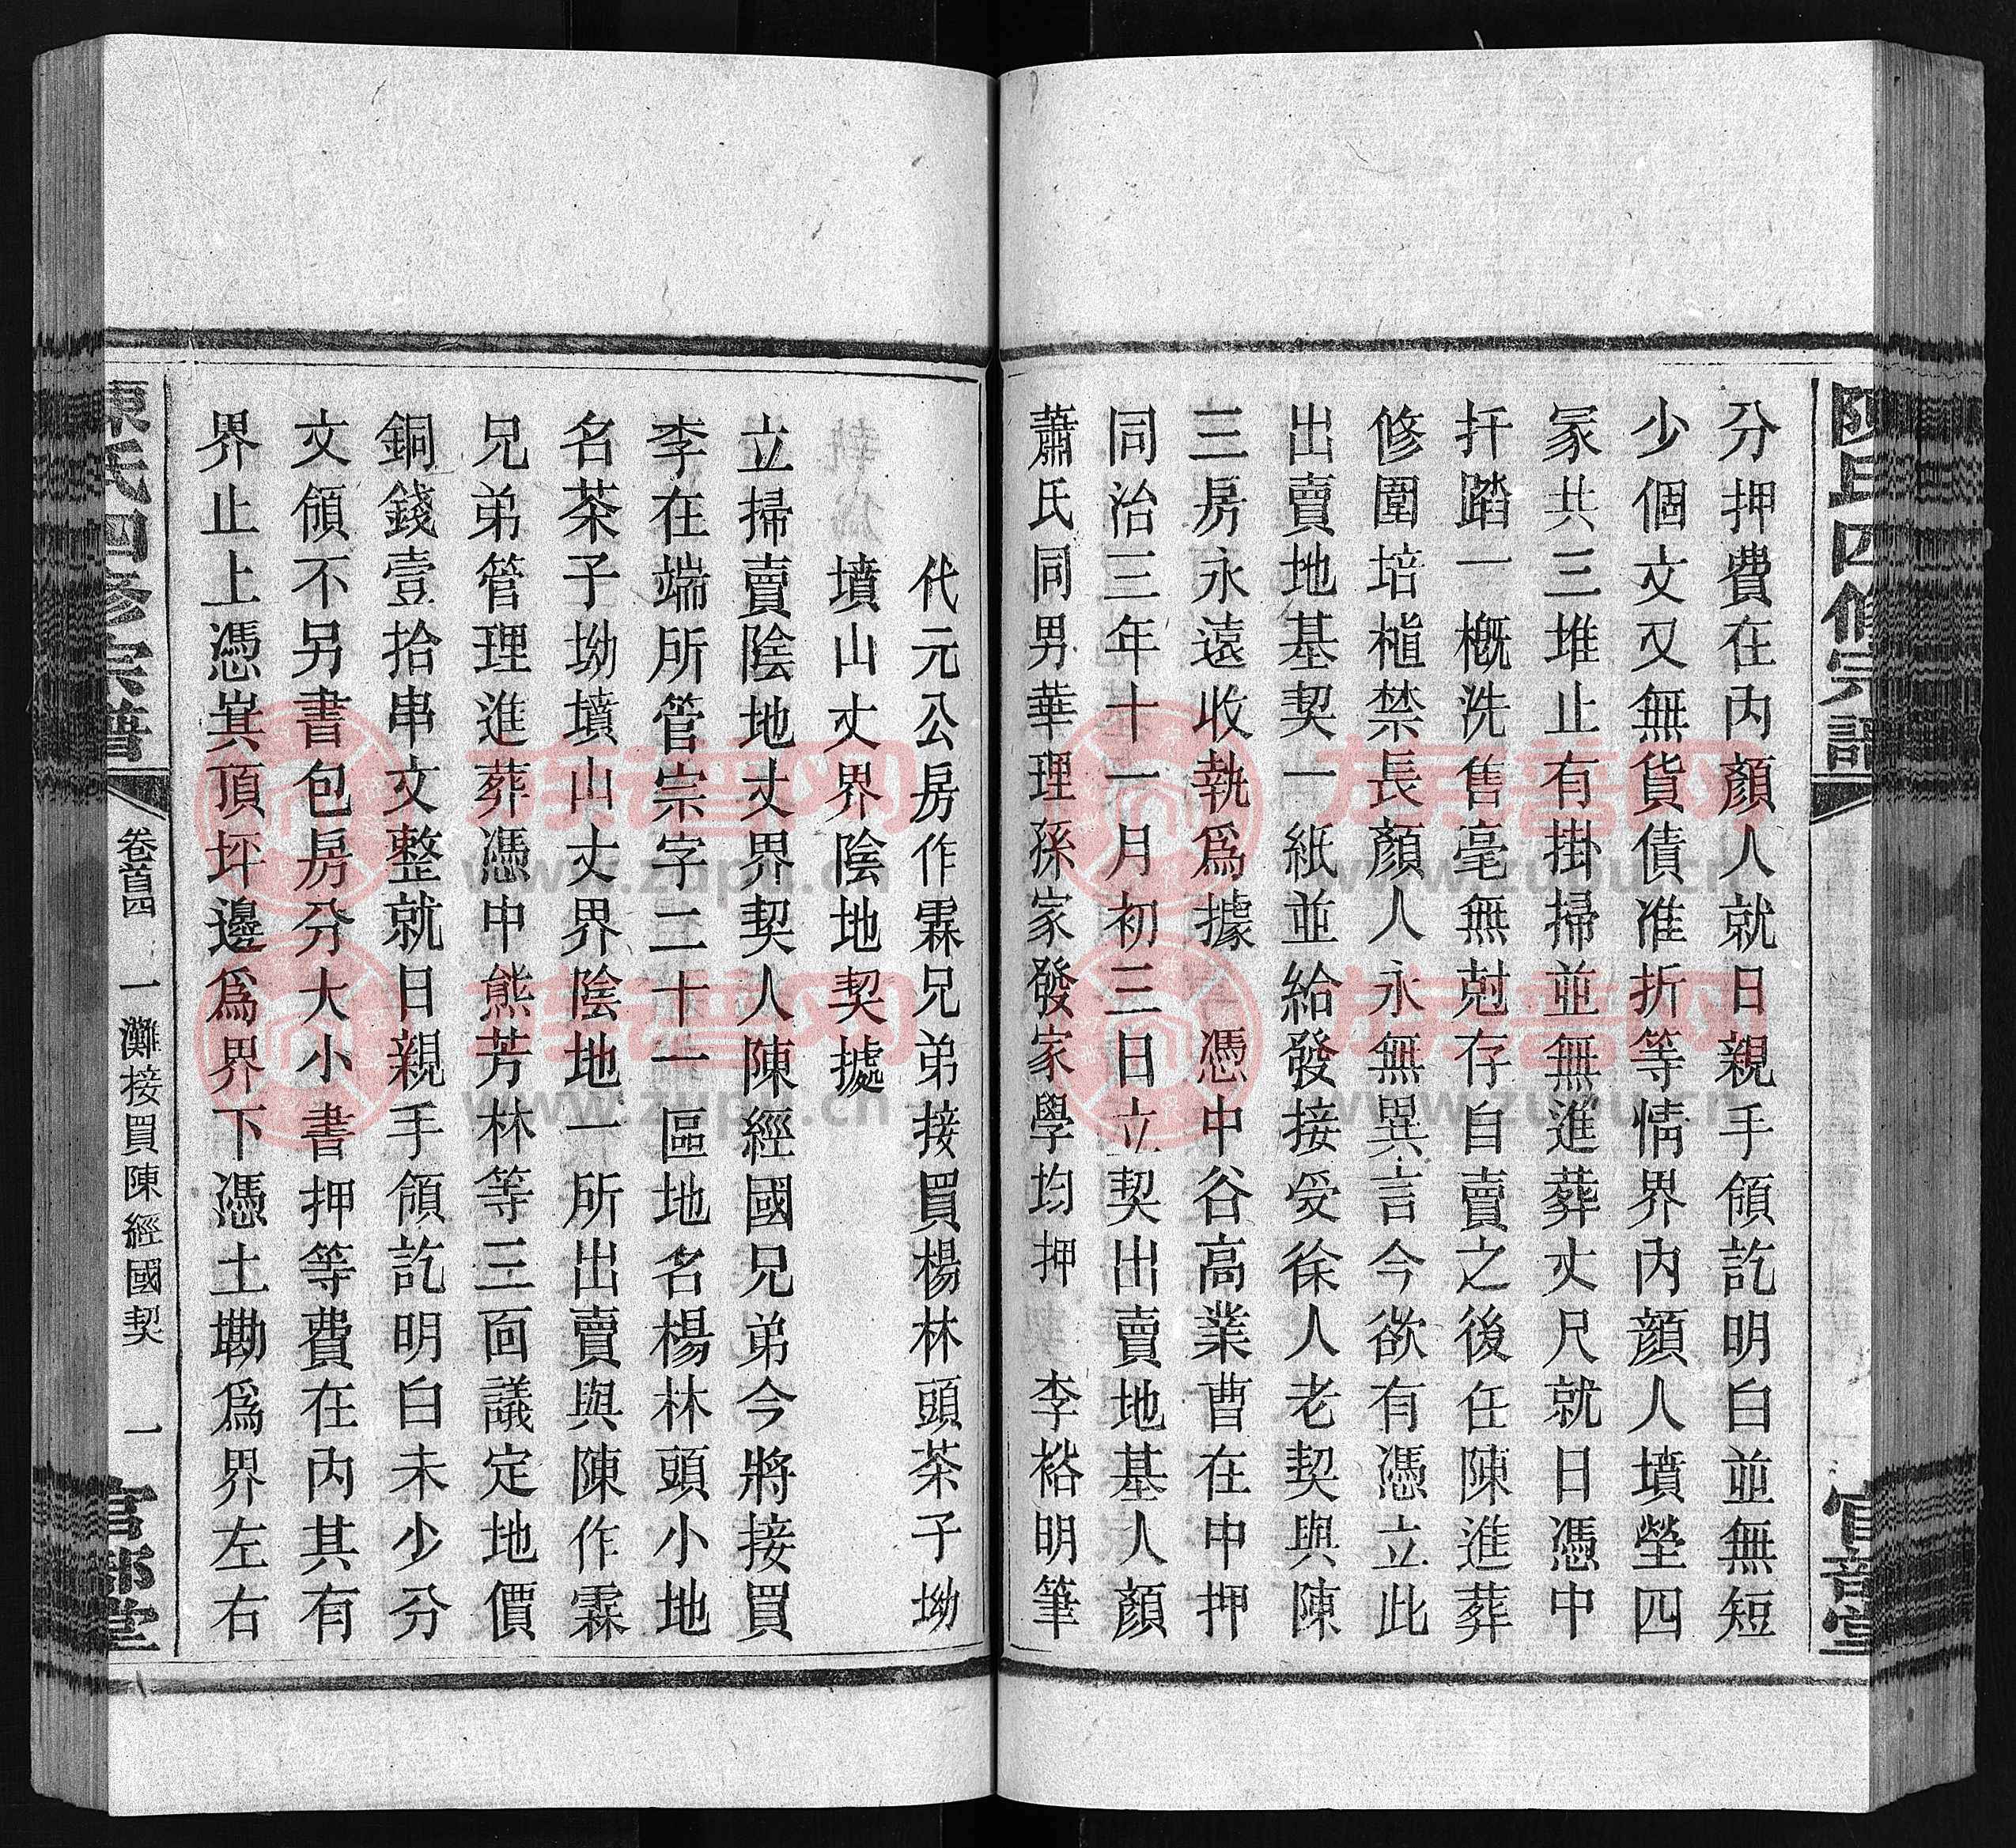 陳氏四修宗譜
官部堂
分押費在内顏人就日親手領訖明白並無短
少個文又無貨債准折等情界內顏人墳塋四
冢共三堆止有掛掃並無進葬丈尺就日憑中
扦踏一概洗售毫無尅存自賣之後任陳進葬
修圍培植禁長顏人永無異言今欲有憑立此
出賣地基契一紙並給發接受徐人老契與陳
三房永遠收執爲據　憑中谷高業曹在中押
同治三年十一月初三日立契出賣地基人顏
蕭氏同男華理孫家發家學均押　李裕明筆
代元公房作霖兄弟接買楊林頭茶子坳
墳山丈界陰地契據
立掃賣陰地丈界契人陳經國兄弟今將接買
李在端所管宗字二十一區地名楊林頭小地
名茶子坳墳山丈界陰地一所出賣與陳作霖
兄弟管理進葬憑中熊芳林等三面議定地價
銅錢壹拾串文整就日親手領訖明白未少分
文領不另書包房分大小書押等費在內其有
界止上憑峎頂坪邊爲界下憑土墈爲界左右
陳氏四修宗譜
卷首四　一灘接買陳經國契　一
官部堂
族譜网
www.zupu.cn
族譜网
www.zupu.cn
族譜网
www.zupu.cn
族譜网
www.zupu.cn